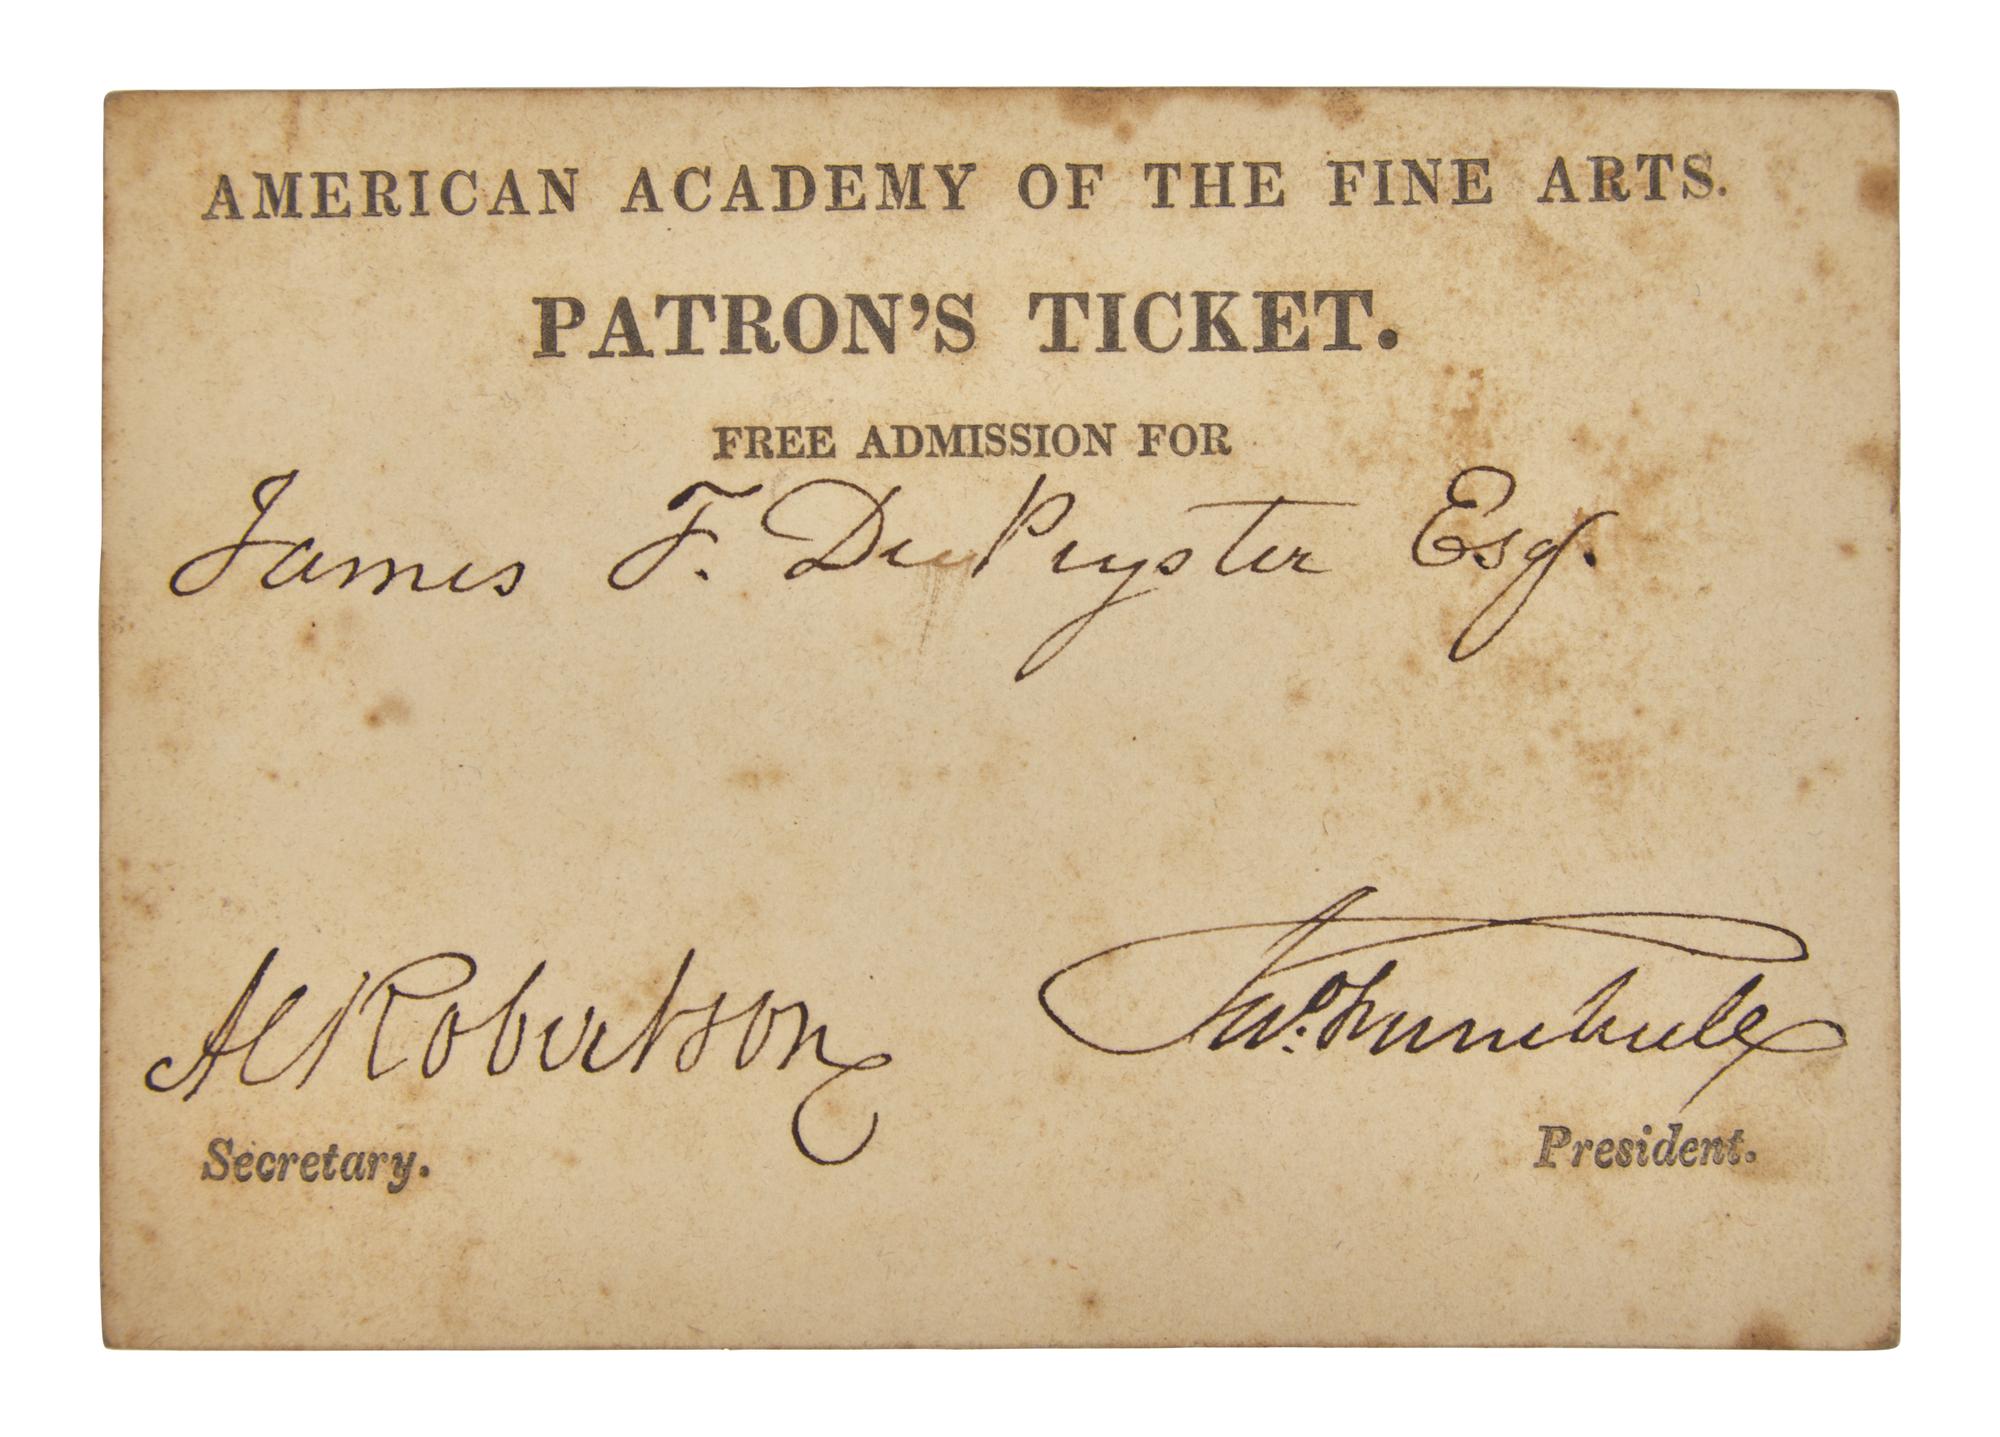 AMERICAN ACADEMY OF THE FINE ARTS.
PATRON'S TICKET.
FREE ADMISSION FOR
James F. De Peyster Esq.
Al Robertson Jno. Trumbull
Secretary. President.